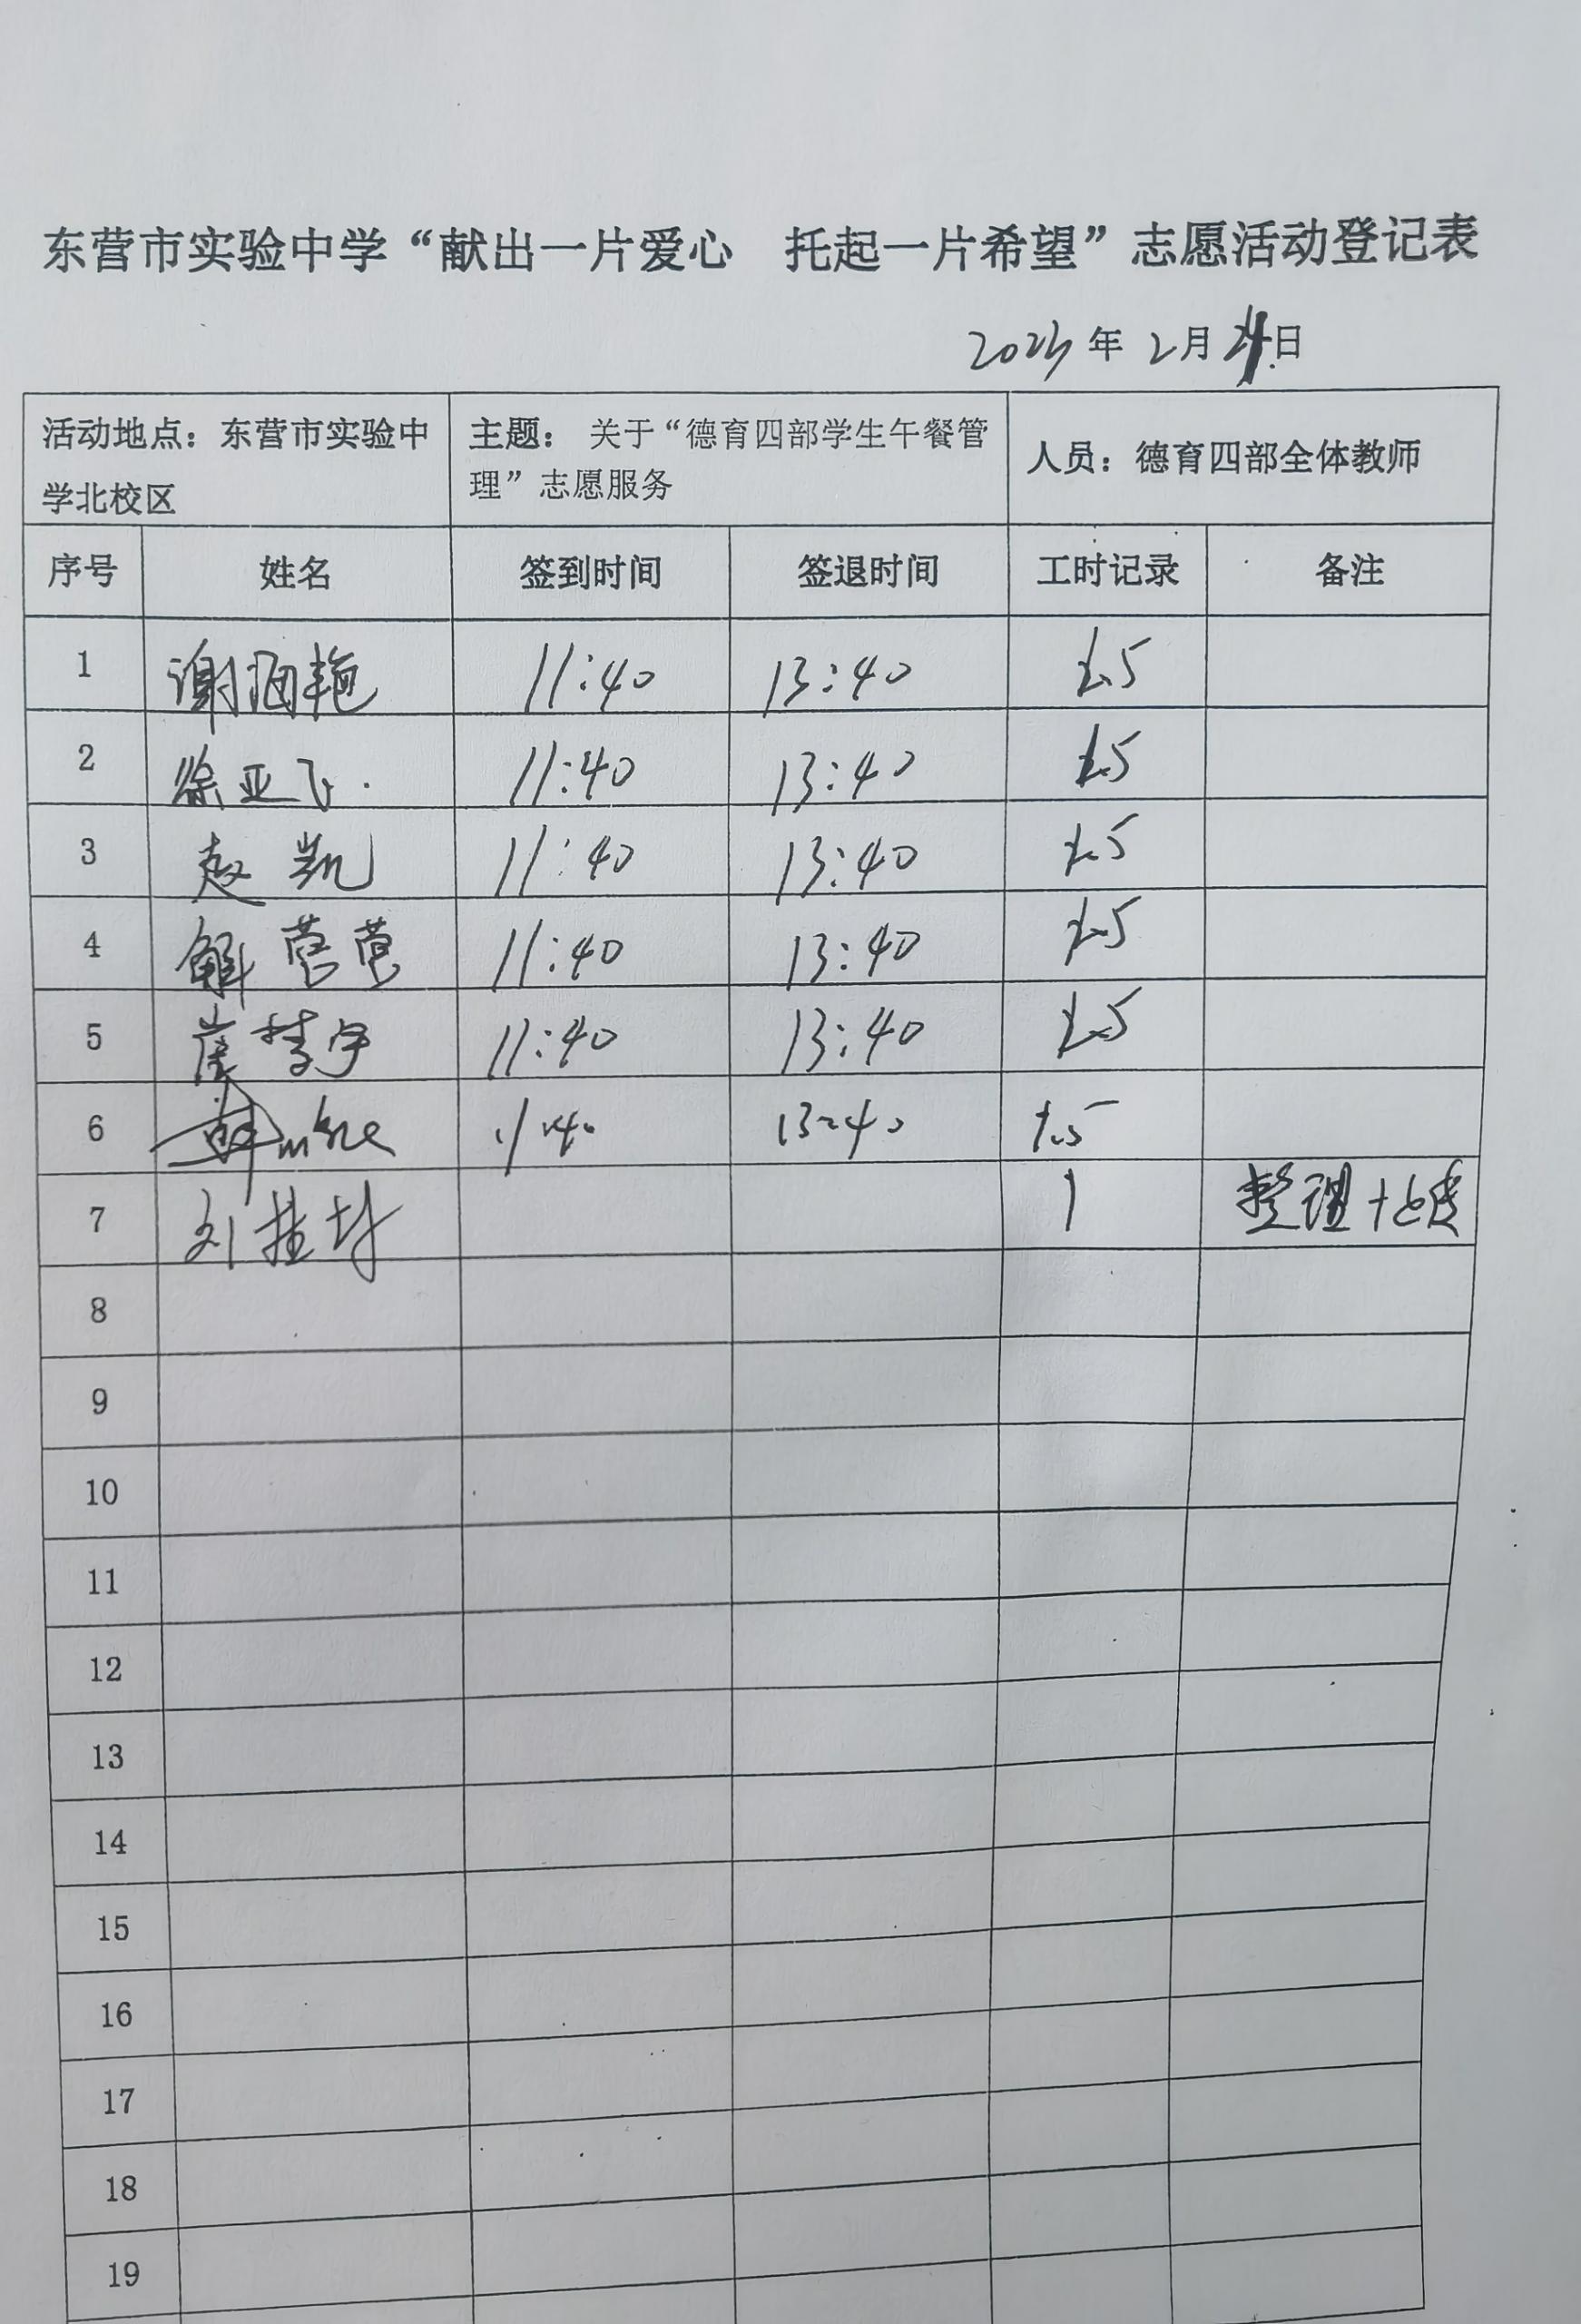 东营市实验中学“献出一片爱心 托起一片希望”志愿活动登记表
2023年 2月 日
活动地点：东营市实验中学北校区 主题： 关于“德育四部学生午餐管理”志愿服务 人员：德育四部全体教师
序号 姓名 签到时间 签退时间 工时记录 备注
1 谢海艳 11:40 13:40 .5
2 徐亚飞 11:40 13:40 .5
3 赵凯 11:40 13:40 .5
4 解营营 11:40 13:40 .5
5 崔梦宇 11:40 13:40 .5
6 11:40 13:40 1.5
7 刘 1 整理
8
9
10
11
12
13
14
15
16
17
18
19